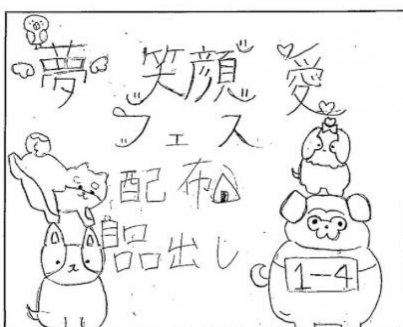 夢 笑顔 愛
フェス
配布
品出し
1-4